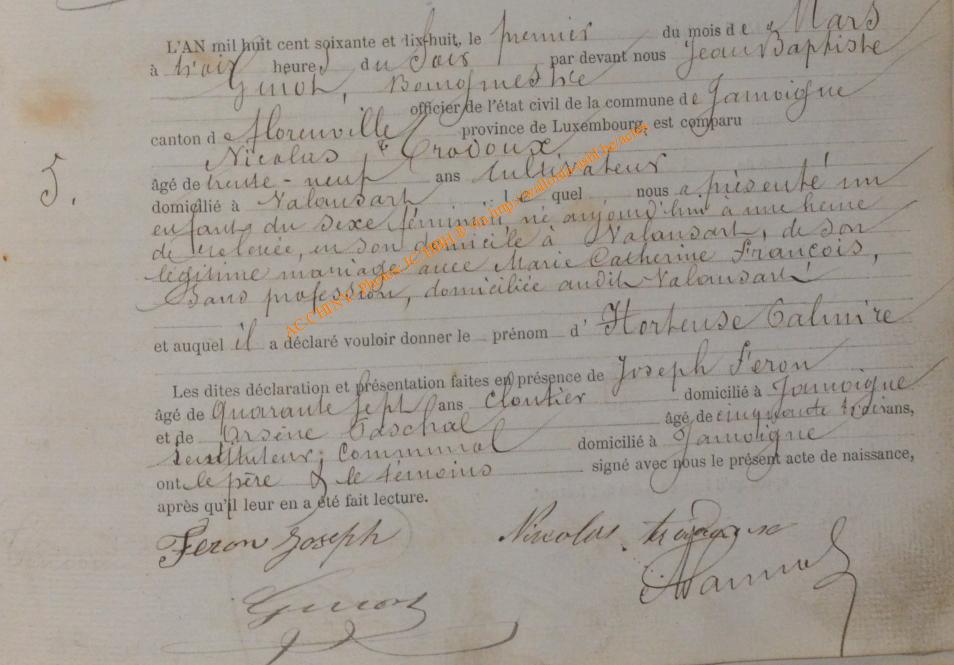 L'AN mil huit cent soixante et dix-huit, le premier du mois de Mars
à trois heures du soir, par devant nous Jean Baptiste
Ginot, Bourgmestre
officier de l'état civil de la commune de Jamoigne
canton de Florenville province de Luxembourg, est comparu
Nicolas
âgé de trente-neuf ans Cultivateur
domicilié à Valansart lequel nous a présenté un
5. enfant du sexe féminin né aujourd'hui à une heure
de relevée, en son domicile à Valansart, de son
légitime mariage avec Marie Catherine François,
sans profession, domiciliée audit Valansart
et auquel il a déclaré vouloir donner le prénom d'Hortense
Les dites déclaration et présentation faites en présence de Joseph Feron
âgé de Quarante sept ans Cloutier domicilié à Jamoigne
et de Arsène Paschal âgé de cinquante trois ans,
instituteur communal domicilié à Jamoigne
ont le père & le témoins signé avec nous le présent acte de naissance,
après qu'il leur en a été fait lecture.
Feron Joseph Nicolas
Ginot